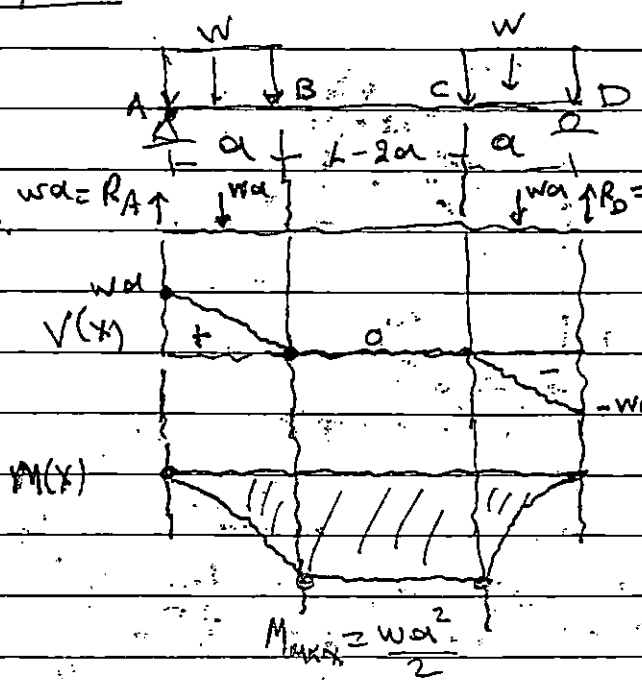 W W
A B C D
a L-2a a
wa = R_A ↑ ↓ wa ↓ wa ↑ R_D =
wa
V(x) + 0 -
-w
M(x)
M_max = wa²/2